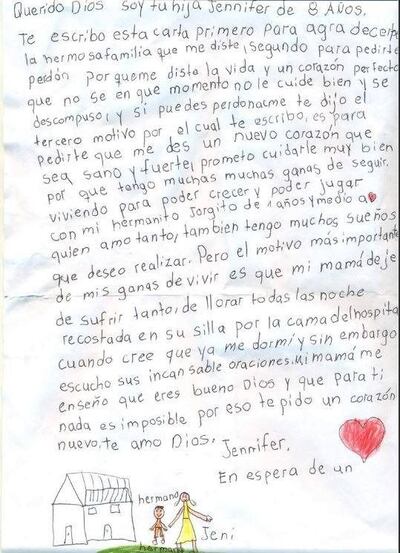 Querido Dios soy tu hija Jennifer de 8 AÑOS.
Te escribo esta carla primero para agradecerte
la hermosa familia que me diste, segundo para pedirte
perdón porqueme diste la vida y un corazón perfecto
que no se en que momento no le cuide bien y se
descompuso, y si puedes perdoname te dijo el
tercero motivo por el cual te escribo, es para
pedirte que me des un nuevo corazón que
sea sano y fuerte, prometo cuidarle muy bien
por que tengo muchas muchas ganas de seguir.
viviendo para poder crecer y poder jugar
con mi hermanito Jorgito de 1 años y medio a
quien amo tanto, tambien tengo muchos sueños
que deseo realizar. Pero el motivo más importante
de mis ganas de vivir es que mi mamá deje
de sufrir tanto, de llorar todas las noche
recostada en su silla por la cama del hospita
cuando cree que ya me dormi y sin embargo
escucho sus incansable oraciones. Mi mamá me
enseño que eres bueno Dios y que para ti
nada es imposible por eso te pido un corazón
nuevo, te amo Dios.
Jennifer.
En espera de un
hermano
Jeni
hermano